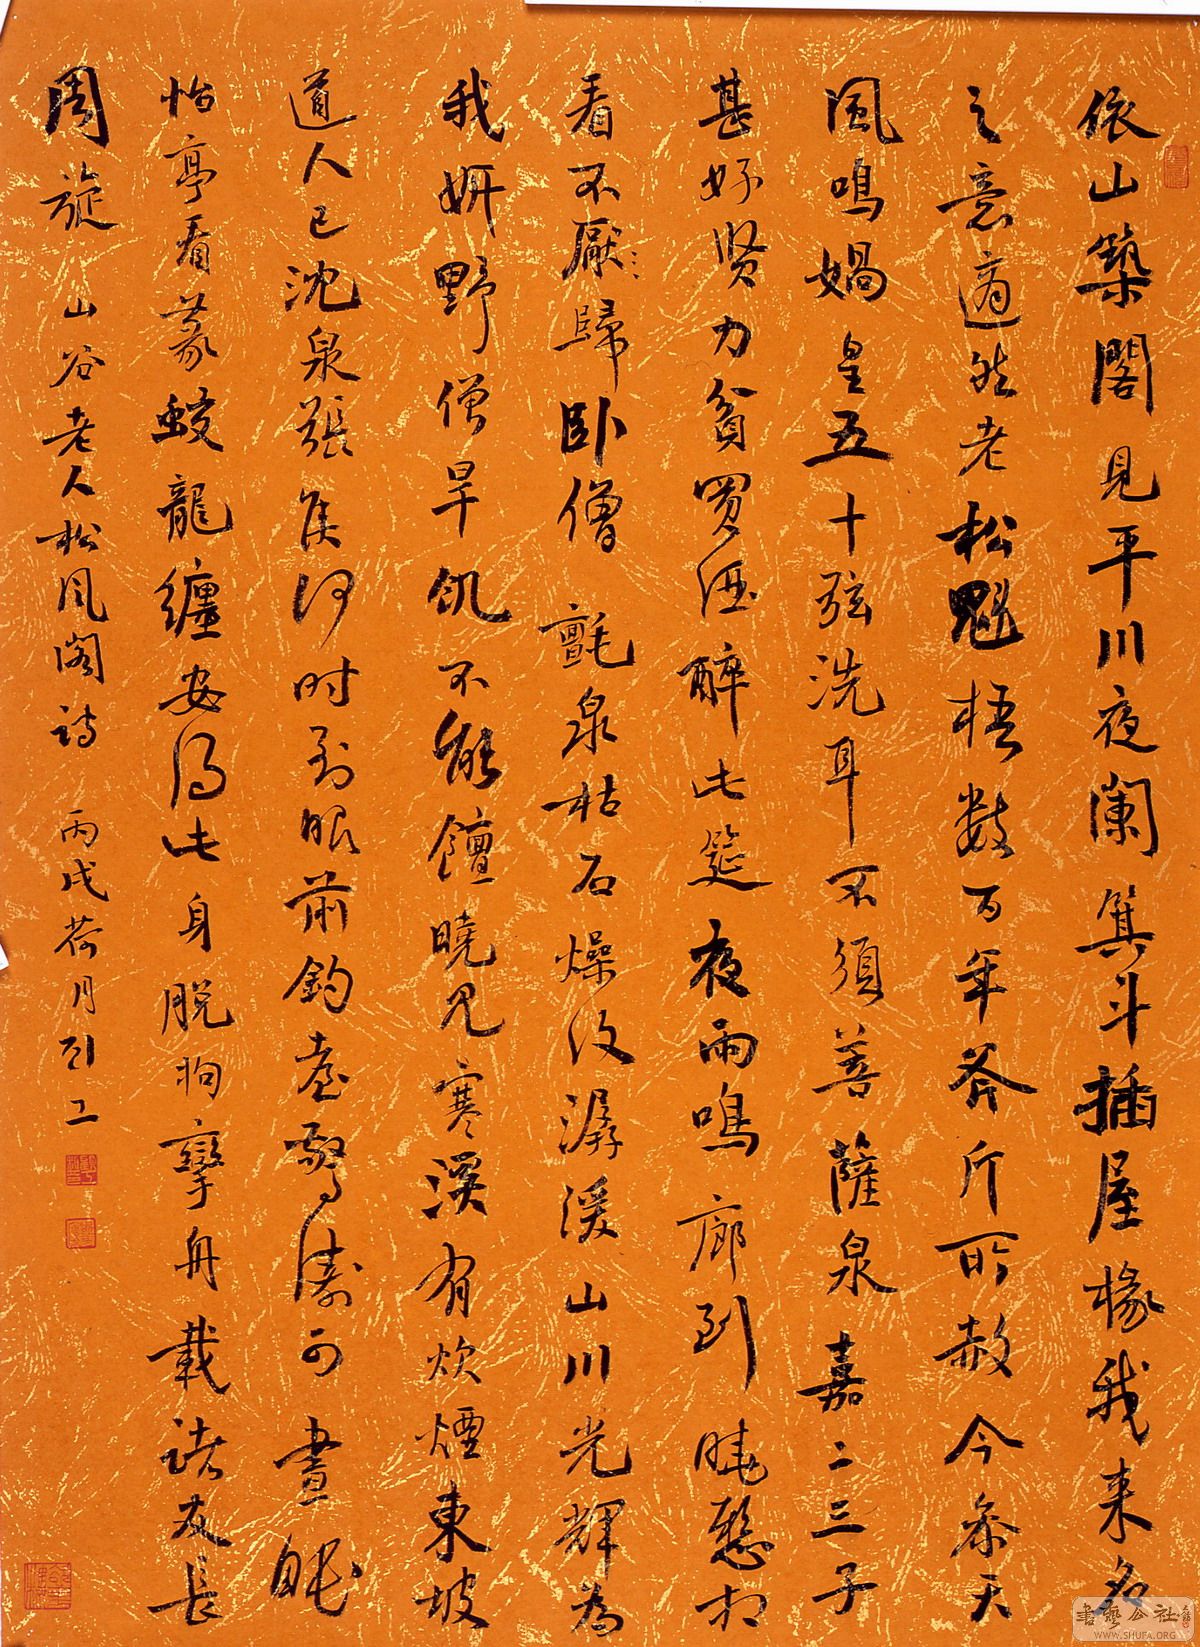 依山築閣見平川夜闌箕斗插屋椽我来名
之意適然老松魁梧數百年斧斤所赦今参天
風鳴媧皇五十弦洗耳不須菩薩泉嘉二三子
甚好贤力貧買酒醉此筵夜雨鳴廊到曉懸相
看不厭歸卧僧氈泉枯石燥復潺湲山川光輝為
我妍野僧旱飢不能饘曉見寒溪有炊煙東坡
道人已沈泉張侯何时到眼前釣臺驚濤可晝眠
怡亭看篆蛟龍纏安得此身脱拘攣舟載諸友長
周旋 山谷老人松風阁詩 丙戌荷月
書藝公社
WWW.SHUFA.ORG